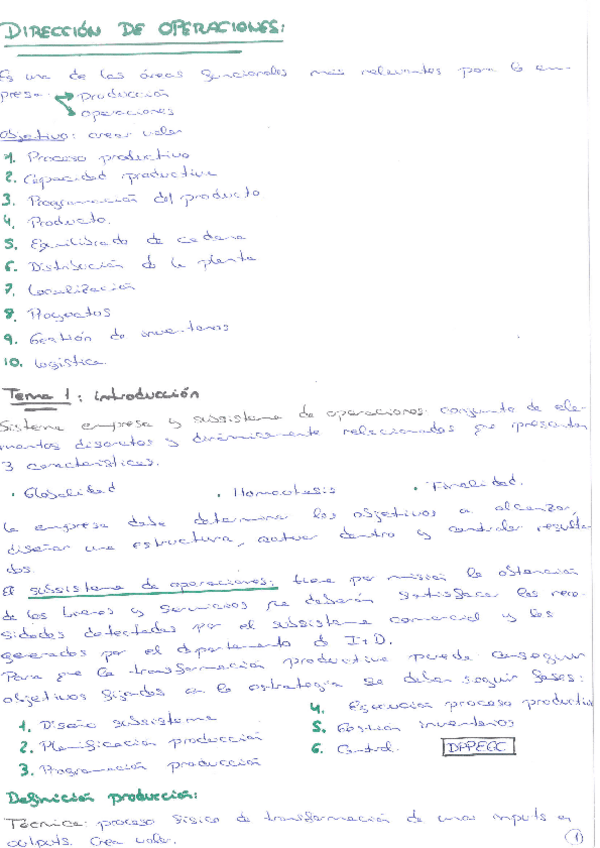 DIRECCIÓN DE OPERACIONES:
Es una de las áreas funcionales más relevantes para la em-
presa: → Producción
→ Operaciones
Objetivo: crear valor
1. Proceso productivo
2. Capacidad productiva
3. Programación del producto
4. Producto.
5. Equilibrado de cadena
6. Distribución d la planta
7. Localización
8. Proyectos
9. Gestión de inventarios
10. Logística.
Tema 1: introducción
Sistema empresa y subsistema de operaciones: conjunto de ele-
mentos discretos y dinámicamente relacionados que presentan
3 características.
· Globalidad · Homeostasis · Finalidad.
la empresa debe determinar los objetivos a alcanzar,
diseñar una estructura, actuar dentro y controlar resulta-
dos.
El subsistema de operaciones: tiene por misión la obtención
de los bienes y servicios que deberán satisfacer las nece-
sidades detectadas por el subsistema comercial y las
generados por el departamento d I+D.
Para que la transformación productiva pueda conseguir
objetivos fijados en la estrategia se deben seguir fases:
1. Diseño subsistema
2. Planificación producción
3. Programación producción
4. Ejecución proceso productivo
5. Gestión inventarios
6. Control. DPPEGC
Definición producción:
Técnica: proceso físico de transformación de unos inputs en
outputs. Crea valor.
1